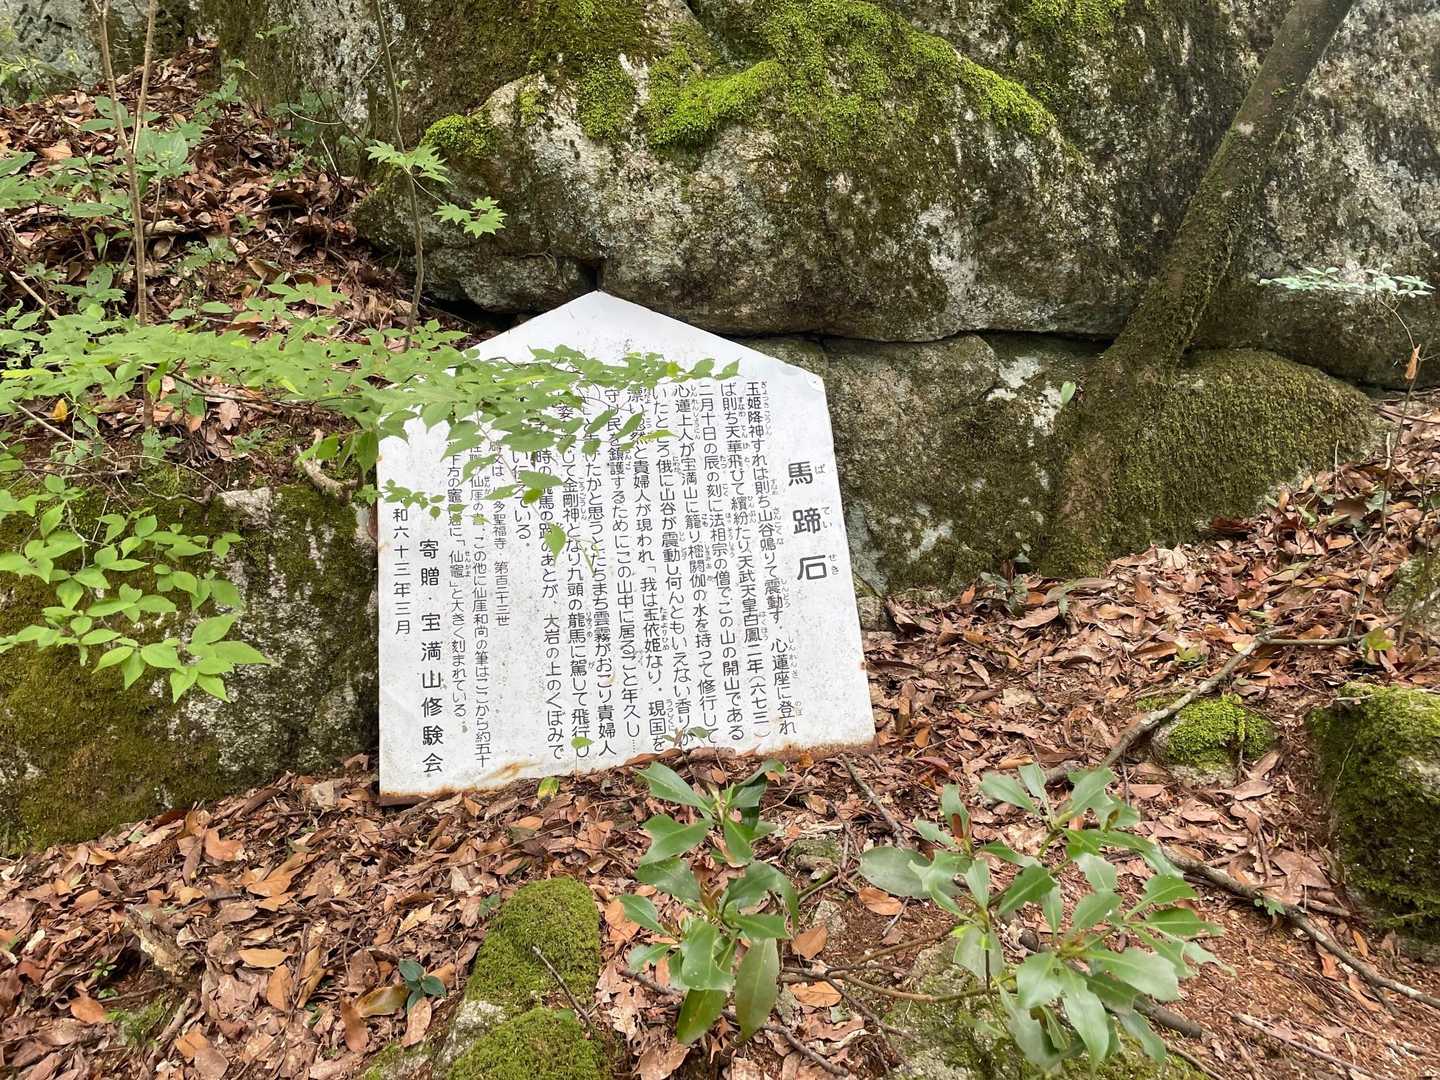 馬蹄石
ばていせき
玉姫降神すれば則ち山谷鳴りて震動す。心蓮座に登れ
ば則ち天華飛びて繽紛たり天武天皇白鳳二年(六七三)
二月十日の辰の刻に法相宗の僧でこの山の開山である
心蓮上人が宝満山に籠り樒閼伽の水を持って修行して
いたところ俄に山谷が震動し何んともいえない香りが
漂い忽然と貴婦人が現われ「我は玉依姫なり。現国を
守り民を鎮護するためにこの山中に居ること年久し……
たかと思うとたちまち雲霧がおこり貴婦人
して金剛神となり九頭の龍馬に駕して飛行し
時の龍馬の蹄のあとが、大岩の上のくぼみで
い伝えている。
多聖福寺 第百二十三世
仙厓の書 この他に仙厓和尚の筆はここから約五十
方の竈邉に「仙竈」と大きく刻まれている
和六十三年三月
寄贈・宝満山修験会